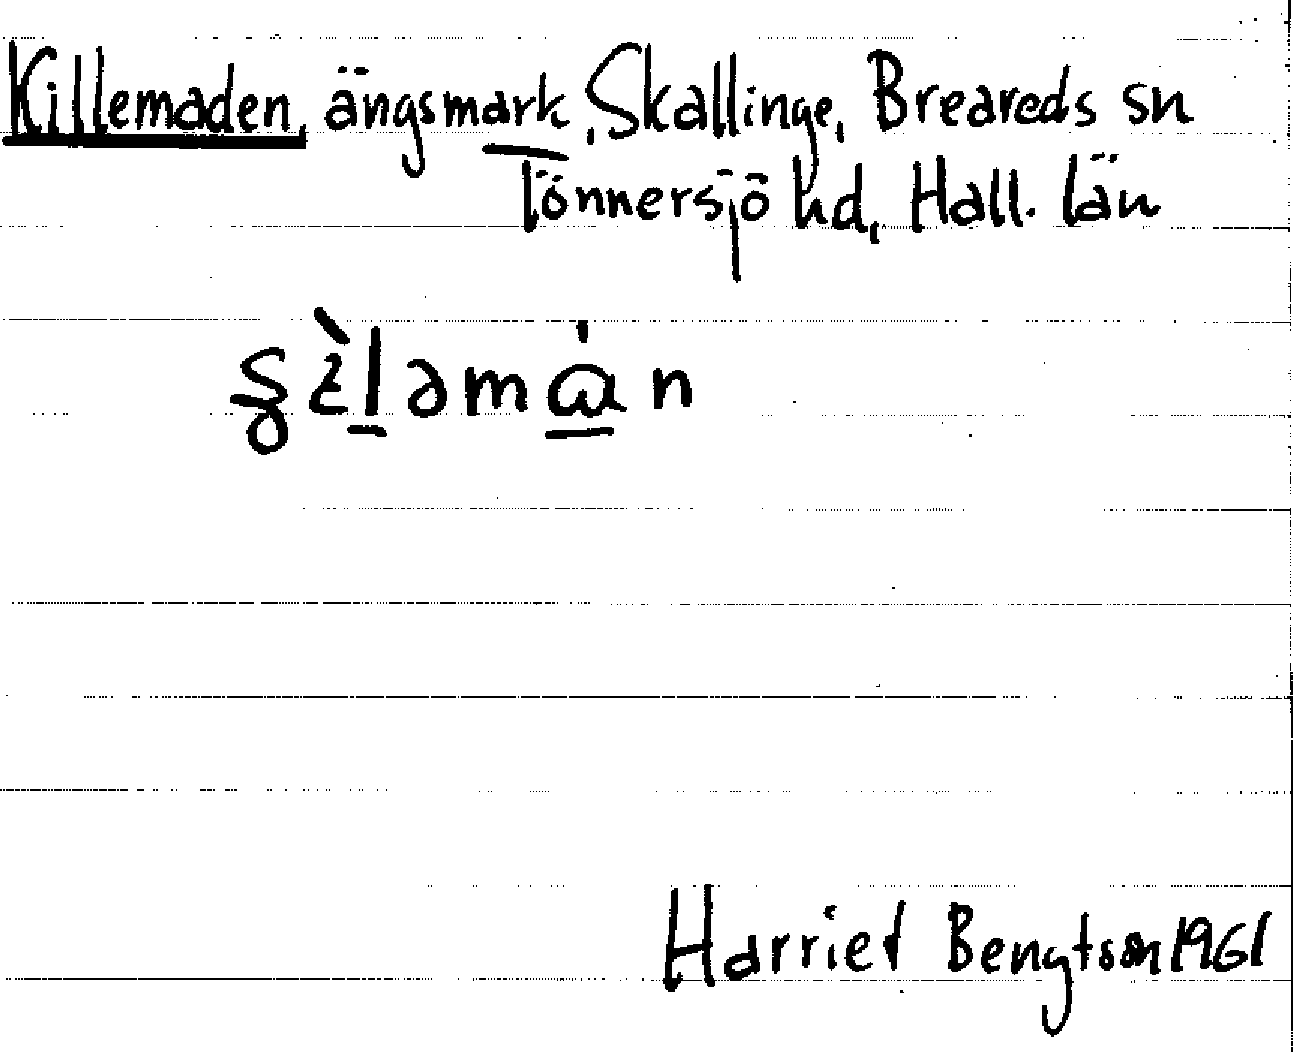 Killemaden, ängsmark, Skallinge, Breareds sn
Tönnersjö hd, Hall. län
Harriet Bengtson 1961